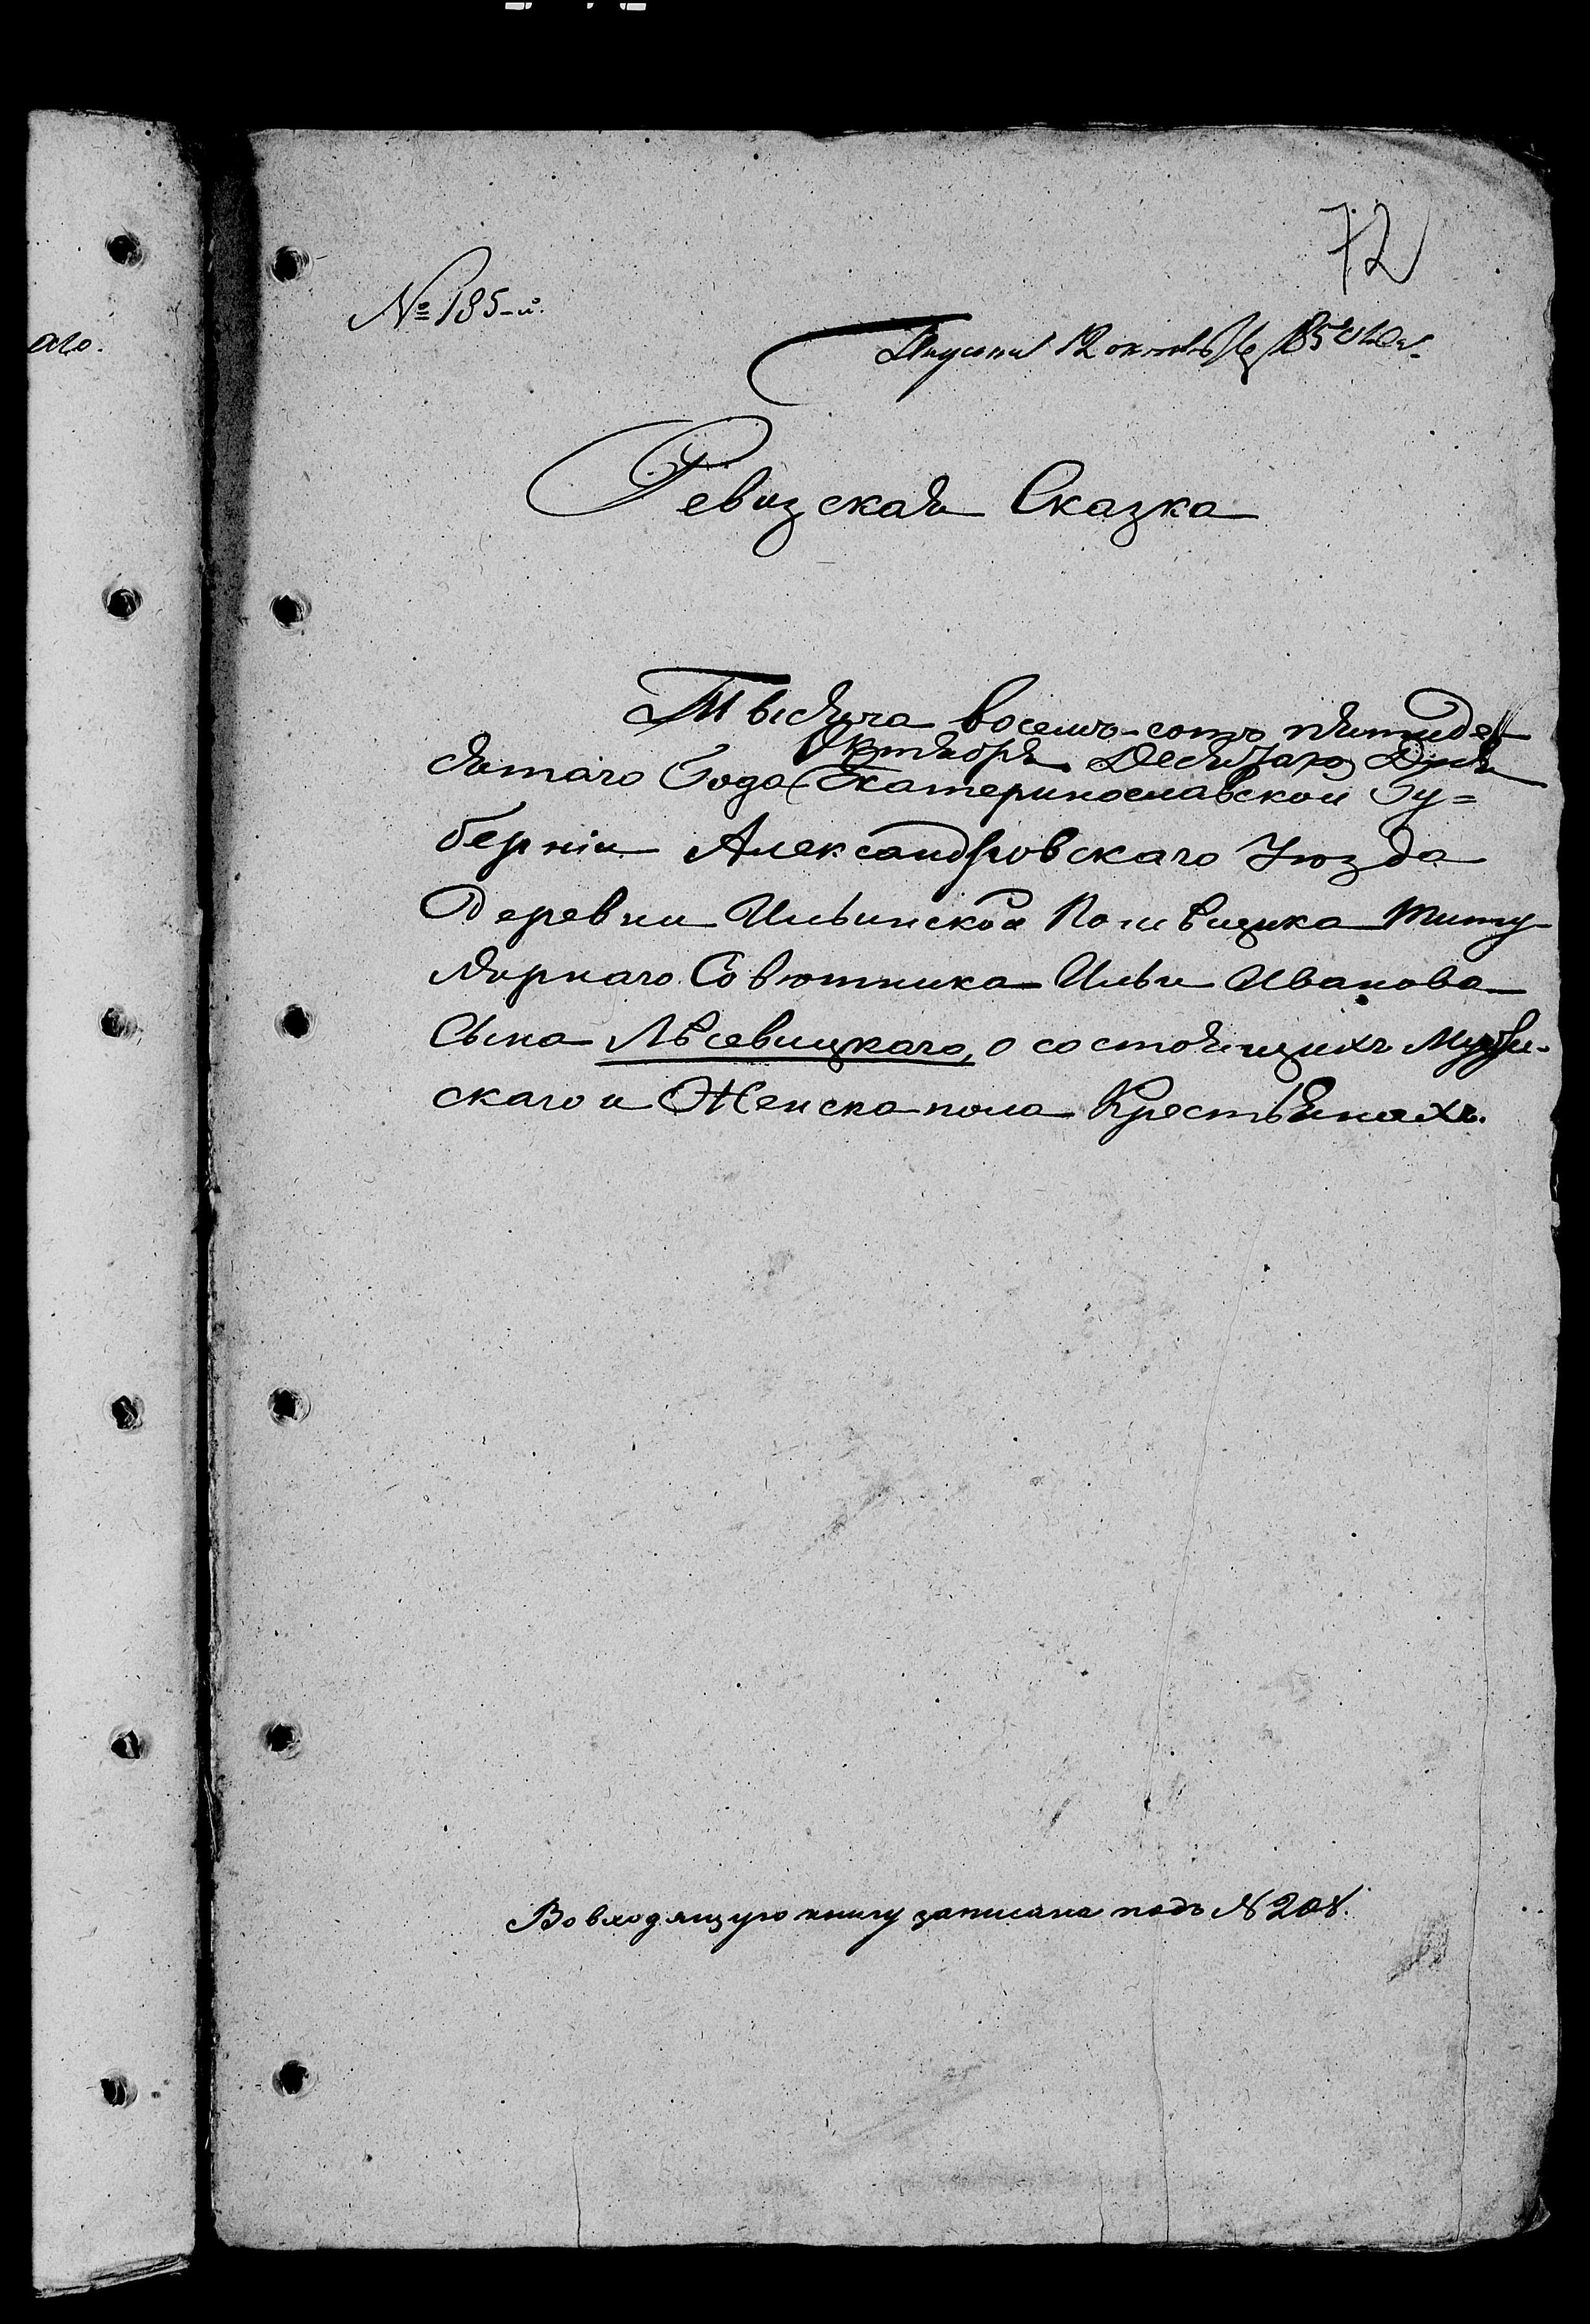 аго.
72
№ 185-й.
12 октяб 1850 года.
Ревизская Сказка
Тысяча восемь-сотъ пятиде-
Октября Десятаго Дня
сятаго Года Екатеринославской Гу=
берніи Александровскаго Уѣзда
Деревни Ильинской Помѣщика Титу-
лярнаго Совѣтника Ильи Иванова
Сына Лѣсевицкаго, о состоящихъ Мужес-
скаго и Женска пола Крестьянахъ.
Во входящую книгу записана подъ № 208.